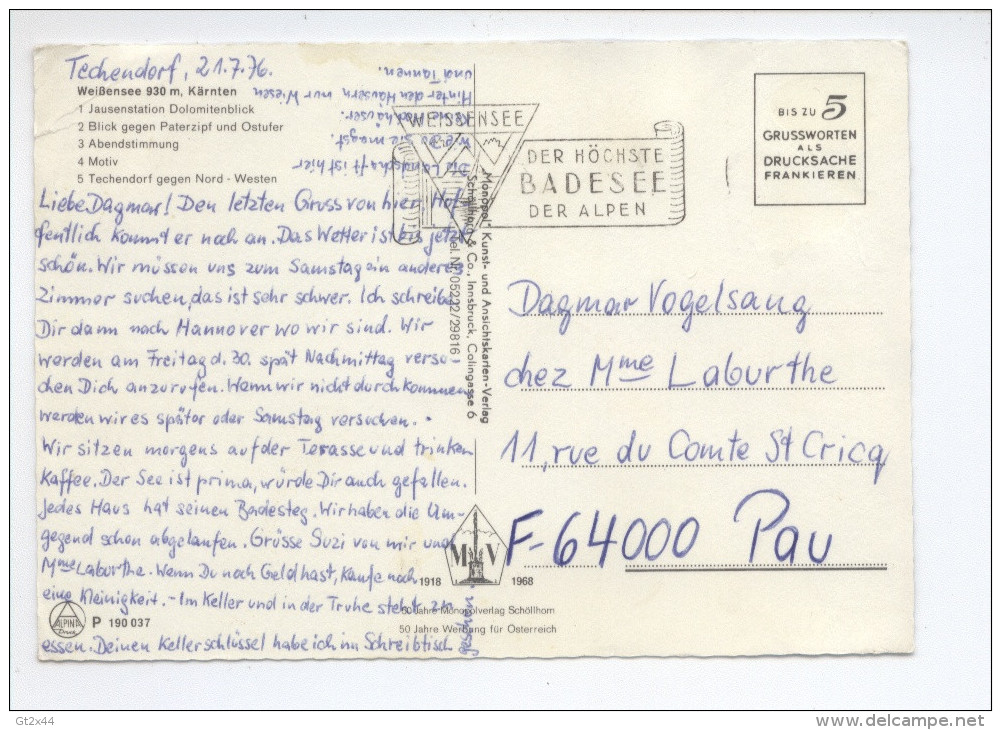 Techendorf, 21.7.76.
Weißensee 930 m, Kärnten
1 Jausenstation Dolomitenblick
2 Blick gegen Paterzipf und Ostufer
3 Abendstimmung
4 Motiv
5 Techendorf gegen Nord - Westen
Liebe Dagmar! Den letzten Gruss von hier. Hof-
fentlich kommt er noch an. Das Wetter ist bis jetzt
schön. Wir müssen uns zum Samstag ein anderes
Zimmer suchen, das ist sehr schwer. Ich schreibe
Dir dann nach Hannover wo wir sind. Wir
werden am Freitag d. 30. spät Nachmittag versu-
chen Dich anzurufen. Wenn wir nicht durch kommen
werden wir es später oder Samstag versuchen.
Wir sitzen morgens auf der Terasse und trinken
Kaffee. Der See ist prima, würde Dir auch gefallen.
Jedes Haus hat seinen Badesteg. Wir haben die Um-
gegend schon abgelaufen. Grüsse Suzi von mir und
Mme Laburthe. Wenn Du noch Geld hast, kaufe noch
eine Kleinigkeit. - Im Keller und in der Truhe steht zu
essen. Deinen Kellerschlüssel habe ich im Schreibtisch
Die Landschaft ist hier
wie Du sie magst.
Keine Hochhäuser.
Hinter den Häusern nur Wiesen
und Tannen.
WEISSENSEE
DER HÖCHSTE
BADESEE
DER ALPEN
„Monopol" Kunst- und Ansichtskarten-Verlag
Schöllhorn & Co., Innsbruck, Colingasse 6
Tel. Nr. 05222/29816
BIS ZU 5
GRUSSWORTEN
ALS
DRUCKSACHE
FRANKIEREN
Dagmar Vogelsang
chez Mme Laburthe
11, rue du Comte St Cricq
F-64000 Pau
M V
1918 1968
50 Jahre Monopolverlag Schöllhorn
50 Jahre Werbung für Österreich
ALPINA
Druck
P 190 037
Gt2x44
delcampe.net